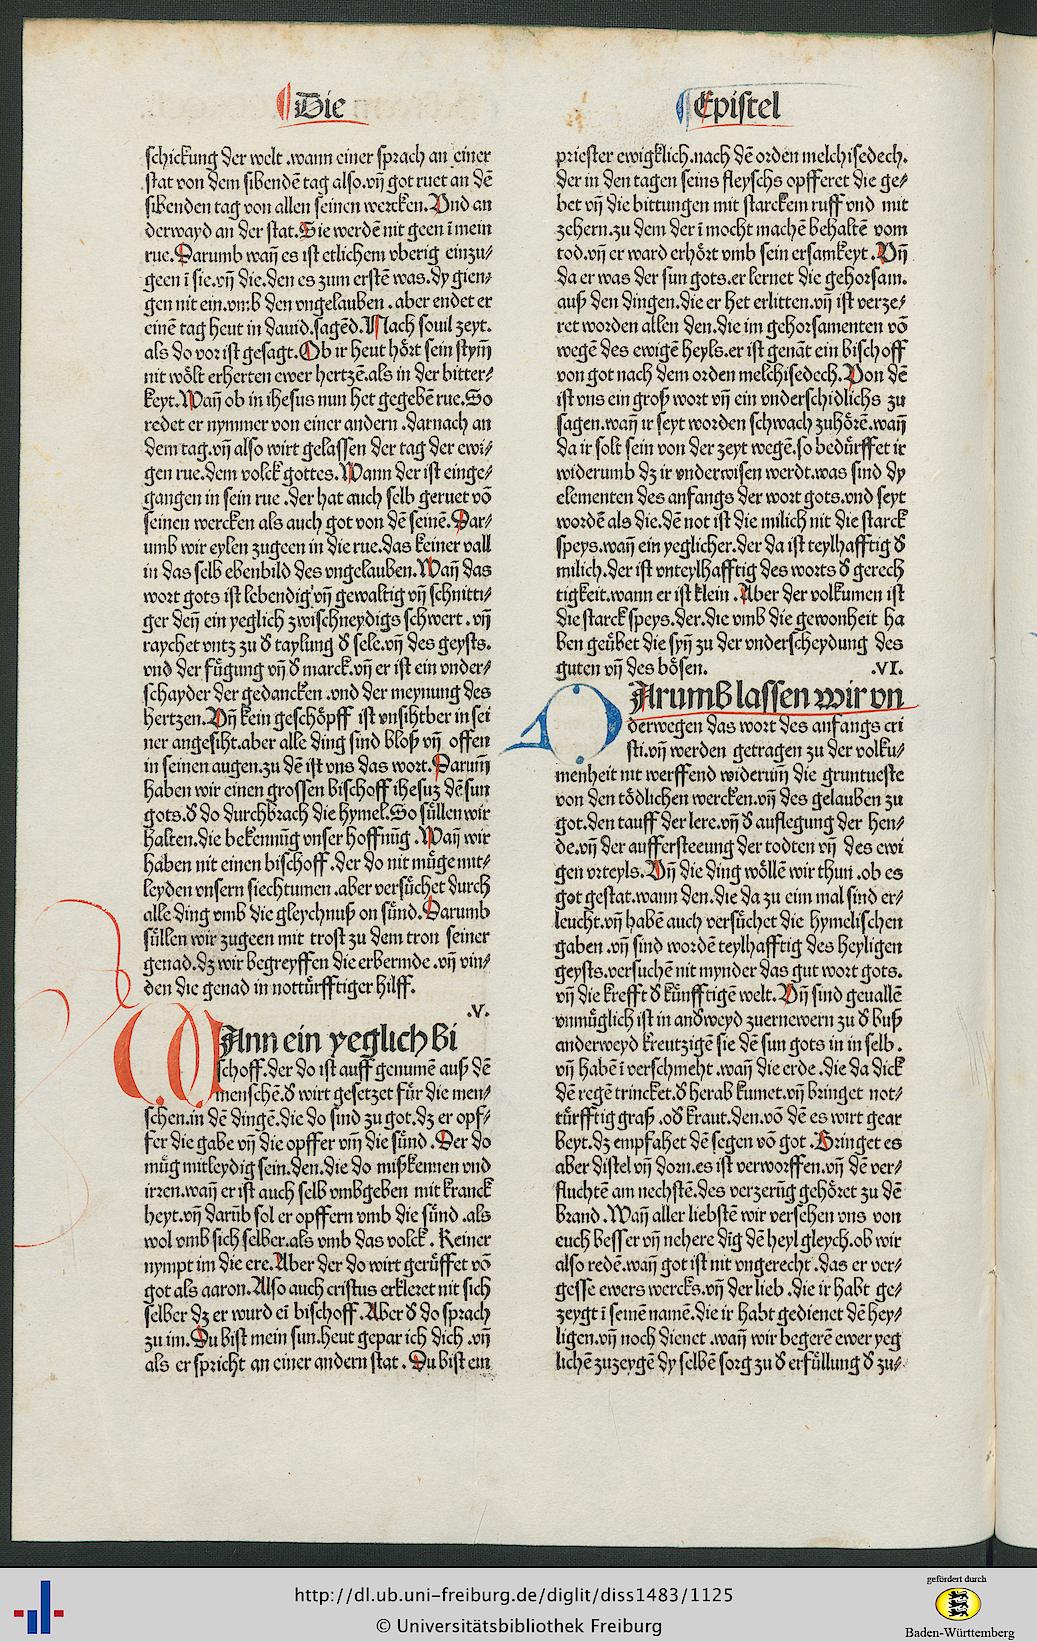 Die
Epistel
schickung der welt .wann einer sprach an einer
stat von dem sibendē tag also.vn̄ got ruet an dē
sibenden tag von allen seinen wercken.Vnd an
derwayd an der stat.Sie werdē nit geen ī mein
rue.Darumb wañ es ist etlichem vberig einzu⸗
geen ī sie.vn̄ die.den es zum erstē was.dy gien⸗
gen nit ein.vmb den vngelauben .aber endet er
einē tag heut in dauid.sagēd.Nach souil zeyt.
als do vor ist gesagt.Ob ir heut hört sein stym̄
nit wölt erherten ewer hertzē.als in der bitter⸗
keyt.Wañ ob in ihesus nun het gegebē rue.So
redet er nymmer von einer andern .darnach an
dem tag.vn̄ also wirt gelassen der tag der ewi⸗
gen rue.dem volck gottes.Wann der ist einge⸗
gangen in sein rue .der hat auch selb geruet vō
seinen wercken als auch got von dē seinē.Dar⸗
umb wir eylen zugeen in die rue.das keiner vall
in das selb ebenbild des vngelauben.Wañ das
wort gots ist lebendig vn̄ gewaltig vn̄ schnitti⸗
ger deñ ein yeglich zwischneydigs schwert .vn̄
raychet vntz zu d̕ taylung d̕ sele.vn̄ des geysts.
vnd der fügung vn̄ d̕ marck.vn̄ er ist ein vnder⸗
schayder der gedancken .vnd der meynung des
hertzen.Vn̄ kein geschöpff ist vnsihtber in sei
ner angesiht.aber alle ding sind bloß vn̄ offen
in seinen augen.zu dē ist vns das wort.Darum̄
haben wir einen grossen bischoff ihesuz dē sun
gots.d̕ do durchbrach die hymel.So süllen wir
halten.die bekennūg vnser hoffnūg .Wañ wir
haben nit einen bischoff .der do nit müge mit⸗
leyden vnsern siechtumen .aber versüchet durch
alle ding vmb die gleychnuß on sünd.Darumb
süllen wir zugeen mit trost zu dem tron seiner
genad.dz wir begreyffen die erbermde .vn̄ vin⸗
den die genad in nottürfftiger hilff.
.V.
WAnn ein yeglich bi
schoff.der do ist auff genumē auß dē
menschē.d̕ wirt gesetzet für die men⸗
schen.in dē dingē.die do sind zu got.dz er opf⸗
fer die gabe vn̄ die opffer vm̄ die sünd .Der do
müg mitleydig sein.den.die do mißkennen vnd
irren.wañ er ist auch selb vmbgeben mit kranck
heyt.vn̄ darūb sol er opffern vmb die sünd .als
wol vmb sich selber.als vmb das volck . Keiner
nympt im die ere.Aber der do wirt gerüffet vō
got als aaron.Also auch cristus erkleret nit sich
selber dz er wurd eī bischoff .Aber d̕ do sprach
zu im.Du bist mein sun.heut gepar ich dich .vn̄
als er spricht an einer andern stat . Du bist ein
priester ewigklich.nach dē orden melchisedech.
der in den tagen seins fleyschs opfferet die ge⸗
bet vn̄ die bittungen mit starckem ruff vnd mit
zehern.zu dem der ī mocht machē behaltē vom
tod.vn̄ er ward erhört vmb sein ersamkeyt .Vn̄
da er was der sun gots.er lernet die gehorsam.
auß den dingen.die er het erlitten.vn̄ ist verze⸗
ret worden allen den.die im gehorsamenten vō
wegē des ewigē heyls.er ist genāt ein bischoff
von got nach dem orden melchisedech.Von dē
ist vns ein groß wort vn̄ ein vnderschidlichs zu
sagen.wañ ir seyt worden schwach zuhörē.wañ
da ir solt sein von der zeyt wegē.so bedürffet ir
widerumb dz ir vnderwisen werdt.was sind dy
elementen des anfangs der wort gots.vnd seyt
wordē als die.dē not ist die milich nit die starck
speys.wañ ein yeglicher.der da ist teylhafftig d̕
milich.der ist vnteylhafftig des worts d̕ gerech
tigkeit.wann er ist klein .Aber der volkumen ist
die starck speys.der.die vmb die gewonheit ha
ben geübet die syn̄ zu der vnderscheydung des
guten vn̄ des bösen.
.VI.
DArumb lassen wir vn
derwegen das wort des anfangs cri
sti.vn̄ werden getragen zu der volku⸗
menheit nit werffend widerum̄ die gruntueste
von den tödlichen wercken.vn̄ des gelauben zu
got.den tauff der lere.vn̄ d̕ auflegung der hen⸗
de.vn̄ der auffersteeung der todten vn̄ des ewi
gen vrteyls.Vn̄ die ding wöllē wir thun .ob es
got gestat.wann den.die da zu eim mal sind er⸗
leucht.vn̄ habē auch versüchet die hymelischen
gaben .vn̄ sind wordē teylhafftig des heyligen
geysts.versuchē nit mynder das gut wort gots.
vn̄ die krefft d̕ künfftigē welt.Vn̄ sind geuallē
vnmüglich ist in and̕weyd zuernewern zu d̕ buß
anderweyd kreutzigē sie dē sun gots in in selb .
vn̄ habē ī verschmeht .wañ die erde .die da dick
dē regē trincket.d̕ herab kumet.vn̄ bringet not⸗
türfftig graß .od̕ kraut.den.vō dē es wirt gear
beyt.dz empfahet dē segen vō got .Bringet es
aber distel vn̄ dorn.es ist verworffen.vn̄ dē ver⸗
fluchtē am nechstē.des verzerūg gehöret zu dē
brand .Wañ aller liebstē wir versehen vns von
euch besser vn̄ nehere dīg dē heyl gleych.ob wir
also redē.wañ got ist nit vngerecht .das er ver⸗
gesse ewers wercks.vn̄ der lieb .die ir habt ge⸗
zeygt ī seinē namē.die ir habt gedienet dē hey⸗
ligen.vn̄ noch dienet .wañ wir begerē ewer yeg
lichē zuzeygē dy selbē sorg zu d̕ erfüllung d̕ zu⸗
http://dl.ub.uni-freiburg.de/diglit/diss1483/1125
© Universitätsbibliothek Freiburg
gefördert durch
Baden-Württemberg